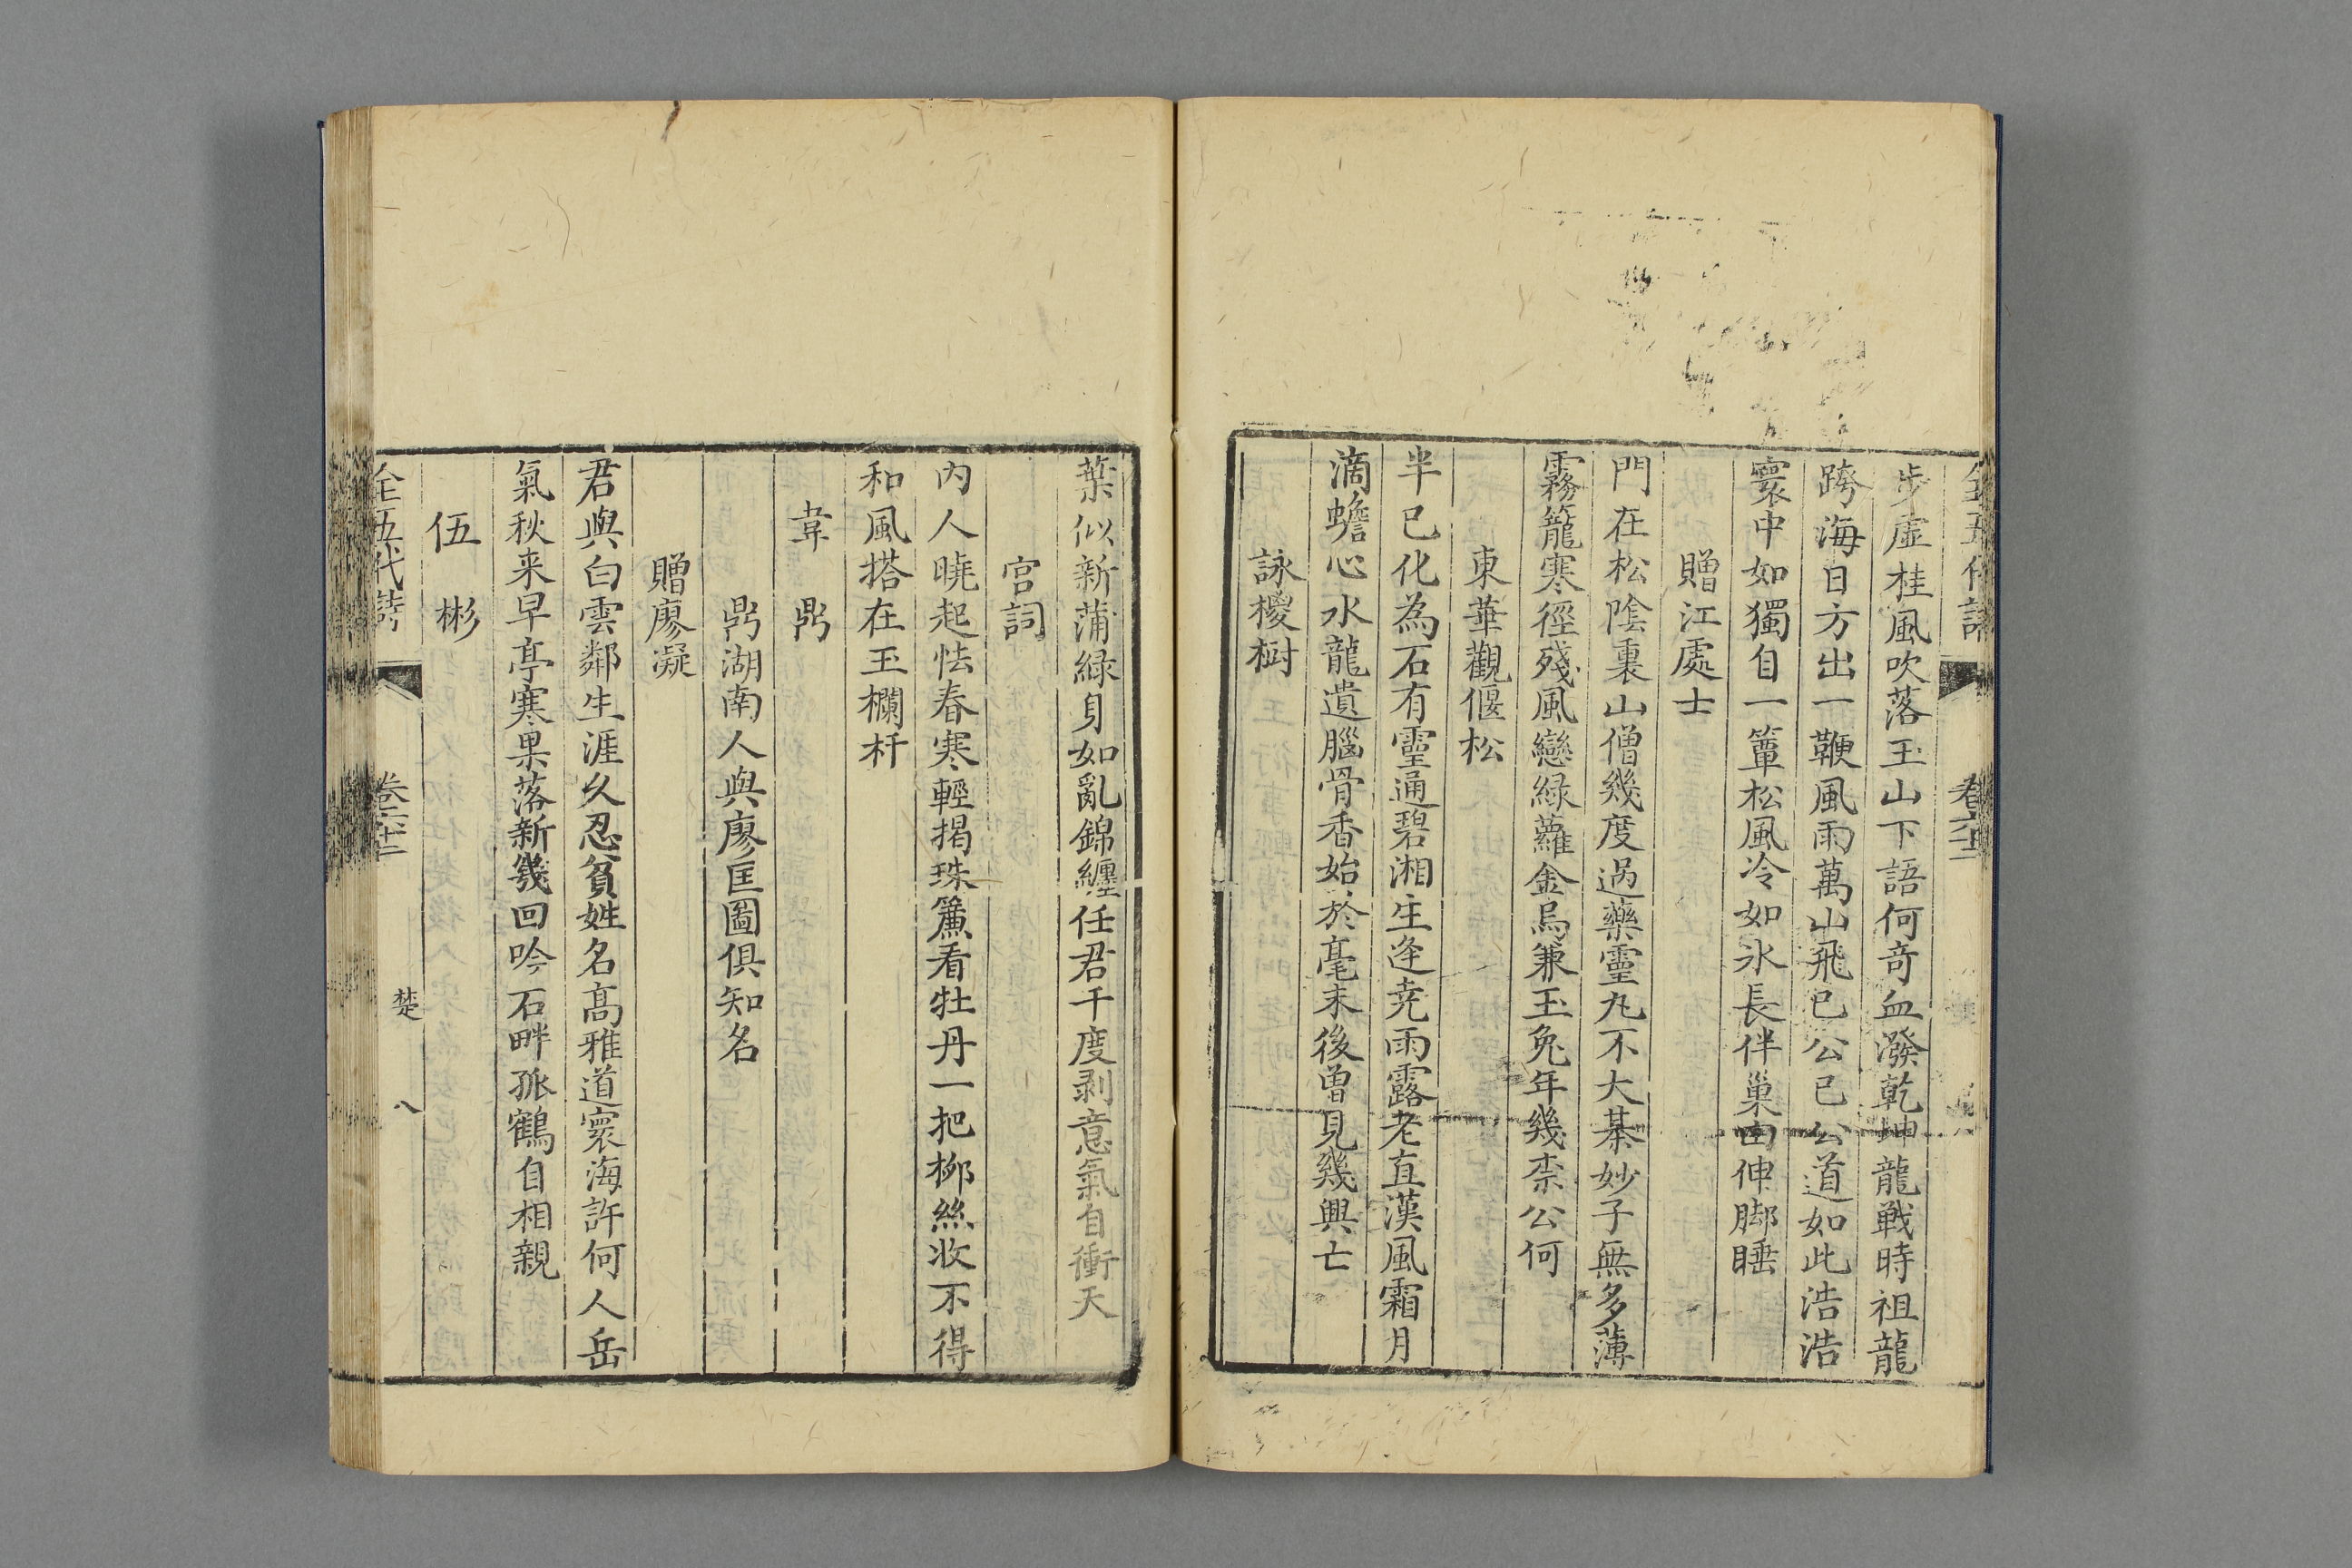 全五代詩 卷六十二
步虛桂風吹落玉山下語何奇血潑乾坤龍戰時祖龍
跨海日方出一鞭風雨萬山飛已公已公道如此浩浩
寰中如獨自一簞松風冷如氷長伴巢由伸脚睡
贈江處士
門在松陰裏山僧幾度過藥靈丸不大棊妙子無多薄
霧籠寒徑殘風戀綠蘿金烏兼玉兔年幾柰公何
東華觀偃松
半已化為石有靈通碧湘生逢尭雨露老直漢風霜月
滴蟾心水龍遺腦骨香始於毫末後曽見幾興亡
詠椶樹
葉似新蒲綠身如亂錦纏任君千度剥意氣自衝天
宮詞
內人曉起怯春寒輕揭珠簾看牡丹一把栁絲收不得
和風搭在玉欄杆
韋鼎
鼎湖南人與廖匡圖俱知名
贈廖凝
君與白雲鄰生涯久忍貧姓名髙雅道寰海許何人岳
氣秋来早亭寒果落新幾回吟石畔孤鶴自相親
伍彬
全五代詩 卷六十二 楚 八